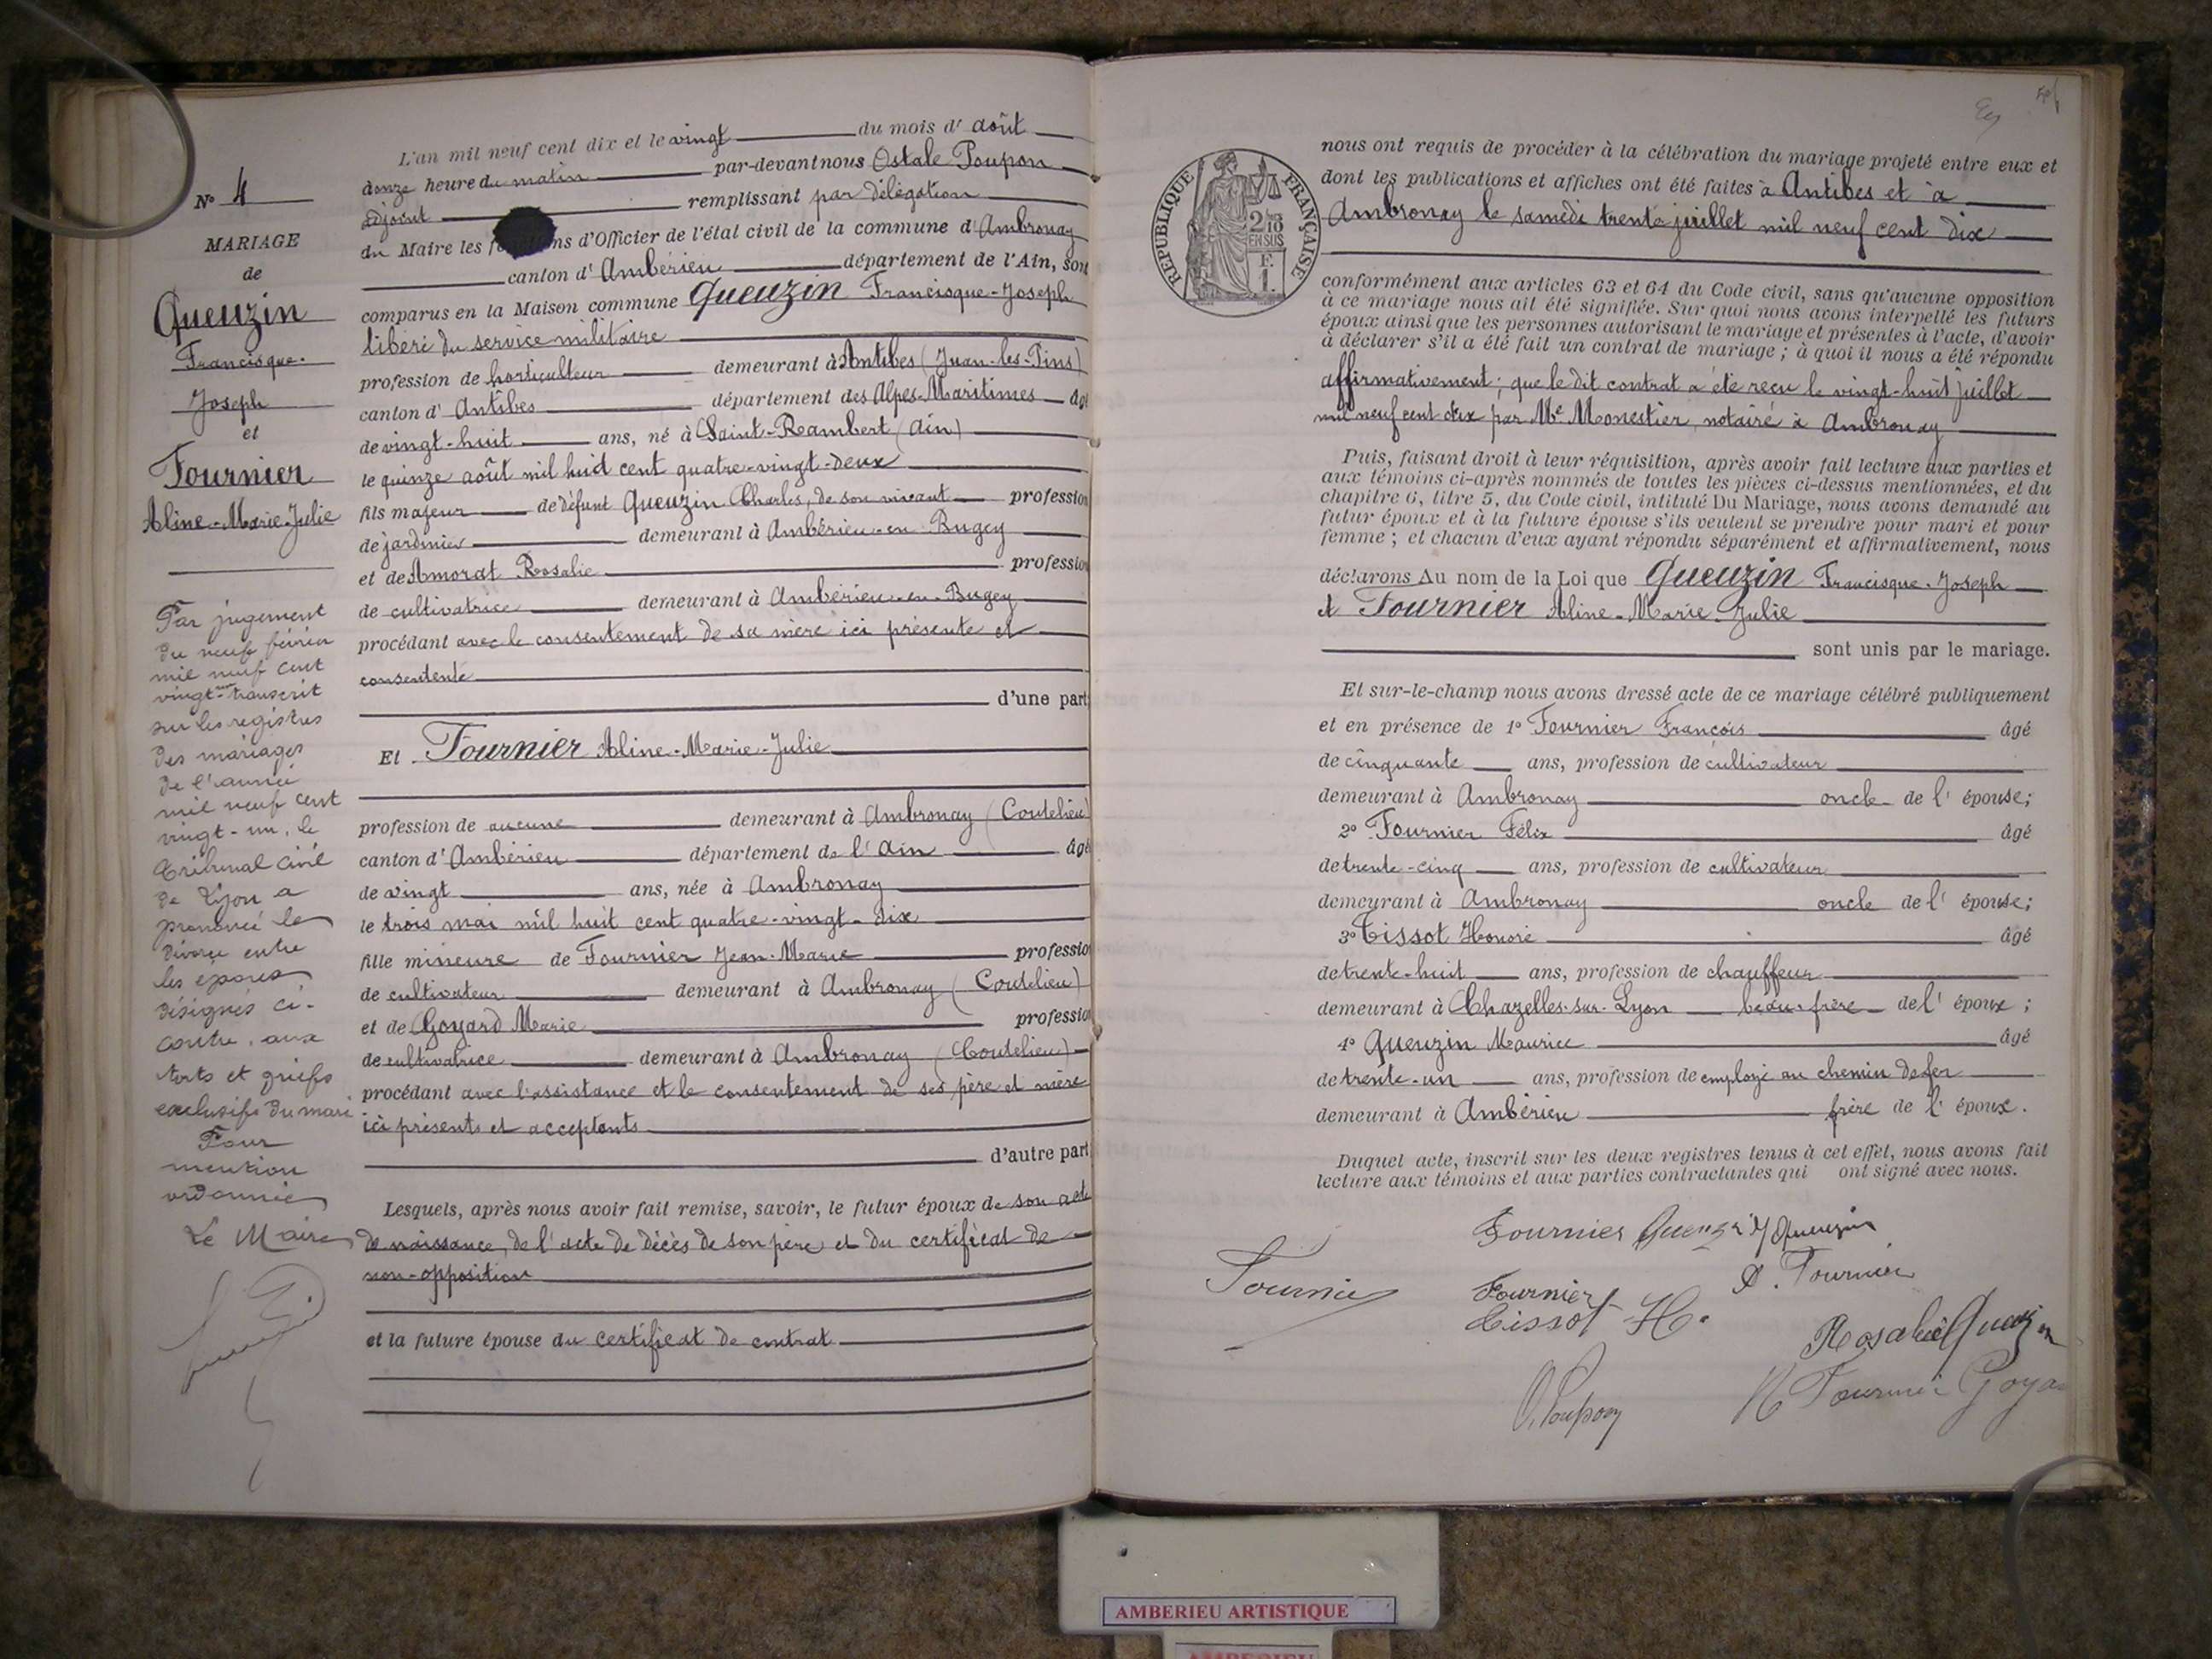 N° 4
MARIAGE
de
Queuzin
Francisque-
Joseph
et
Fournier
Aline-Marie-Julie
Par jugement
du neuf février
mil neuf cent
vingt-un transcrit
sur les registres
des mariages
de l'année
mil neuf cent
vingt-un, le
Tribunal civil
de Lyon a
prononcé le
divorce entre
les époux
désignés ci-
contre, aux
torts et griefs
exclusifs du mari
Pour
mention
ordonnée
Le Maire
L'an mil neuf cent dix et le vingt du mois d' août
donze heure du matin par-devant nous Ostale Poupon
adjoint remplissant par délégation
du Maire les fonctions d'Officier de l'état civil de la commune d'Ambronay
canton d' Ambérieu département de l'Ain, sont
comparus en la Maison commune Queuzin Francisque-Joseph
libéré du service militaire
profession de horticulteur demeurant à Antibes (Juan-les-Pins)
canton d' Antibes département des Alpes-Maritimes âgé
de vingt-huit ans, né à Saint-Rambert (Ain)
le quinze août mil huit cent quatre-vingt-deux
fils majeur de défunt Queuzin Charles, de son vivant profession
de jardinier demeurant à Ambérieu-en-Bugey
et de Amorat Rosalie profession
de cultivatrice demeurant à Ambérieu-en-Bugey
procédant avec le consentement de sa mère ici présente et
consentente
d'une part
Et Fournier Aline-Marie-Julie
profession de aucune demeurant à Ambronay (Coutelieu)
canton d'Ambérieu département de l'Ain âgé
de vingt ans, née à Ambronay
le trois mai mil huit cent quatre-vingt-dix
fille mineure de Fournier Jean-Marie profession
de cultivateur demeurant à Ambronay (Coutelieu)
et de Goyard Marie profession
de cultivatrice demeurant à Ambronay (Coutelieu)
procédant avec l'assistance et le consentement de ses père et mère
ici présents et acceptants
d'autre part
Lesquels, après nous avoir fait remise, savoir, le futur époux de son acte
de naissance, de l'acte de décès de son père et du certificat de
non-opposition
et la future épouse du certificat de contrat
RÉPUBLIQUE FRANÇAISE
2/10
EN SUS
F.
1.
nous ont requis de procéder à la célébration du mariage projeté entre eux et
dont les publications et affiches ont été faites à Antibes et à
Ambronay le samedi trente juillet mil neuf cent dix
conformément aux articles 63 et 64 du Code civil, sans qu'aucune opposition
à ce mariage nous ait été signifiée. Sur quoi nous avons interpellé les futurs
époux ainsi que les personnes autorisant le mariage et présentes à l'acte, d'avoir
à déclarer s'il a été fait un contrat de mariage ; à quoi il nous a été répondu
affirmativement ; que le dit contrat a été reçu le vingt-huit juillet
mil neuf cent dix par Me Monestier, notaire à Ambronay
Puis, faisant droit à leur réquisition, après avoir fait lecture aux parties et
aux témoins ci-après nommés de toutes les pièces ci-dessus mentionnées, et du
chapitre 6, titre 5, du Code civil, intitulé Du Mariage, nous avons demandé au
futur époux et à la future épouse s'ils veulent se prendre pour mari et pour
femme ; et chacun d'eux ayant répondu séparément et affirmativement, nous
déclarons Au nom de la Loi que Queuzin Francisque-Joseph
et Fournier Aline-Marie-Julie
sont unis par le mariage.
Et sur-le-champ nous avons dressé acte de ce mariage célébré publiquement
et en présence de 1° Fournier François âgé
de cinquante ans, profession de cultivateur
demeurant à Ambronay oncle de l' épouse;
2° Fournier Félix âgé
de trente-cinq ans, profession de cultivateur
demeurant à Ambronay oncle de l' épouse;
3° Tissot Honoré âgé
de trente-huit ans, profession de chauffeur
demeurant à Chazelles-sur-Lyon beau-frère de l' époux ;
4° Queuzin Maurice âgé
de trente-un ans, profession de employé au chemin de fer
demeurant à Ambérieu frère de l' époux.
Duquel acte, inscrit sur les deux registres tenus à cet effet, nous avons fait
lecture aux témoins et aux parties contractantes qui ont signé avec nous.
Fournier Queuzin Queuzin
Fournier Fournier A. Fournier
Tissot H.
Rosalie Queuzin
O. Poupon Fournier Goya
AMBERIEU ARTISTIQUE
AMBERIEU